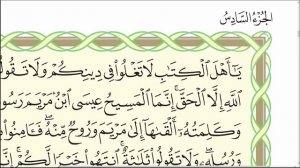 الجزء السادس
يَٰٓأَهْلَ ٱلْكِتَٰبِ لَا تَغْلُوا۟ فِى دِينِكُمْ وَلَا تَقُولُو
ٱللَّهِ إِلَّا ٱلْحَقَّ ۚ إِنَّمَا ٱلْمَسِيحُ عِيسَى ٱبْنُ مَرْيَمَ رَسُو
وَكَلِمَتُهُۥٓ أَلْقَىٰهَآ إِلَىٰ مَرْيَمَ وَرُوحٌ مِّنْهُ ۖ فَـَٔامِنُوا۟
وَرُسُلِهِۦ ۖ وَلَا تَقُولُوا۟ ثَلَٰثَةٌ ۚ ٱنتَهُوا۟ خَيْرًا لَّكُمْ ۚ إِنَّ